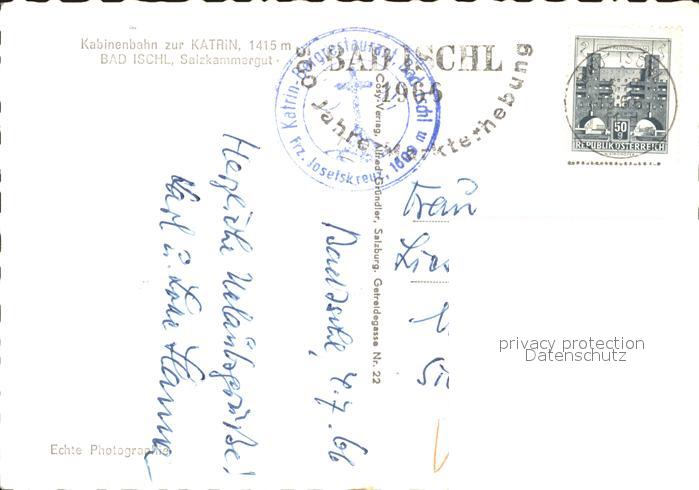 Kabinenbahn zur KATRiN, 1415 m
BAD ISCHL, Salzkammergut
Katrin-Bergrestaurant Bad Ischl
frz. Josefskreuz 1609 m
BAD ISCHL
1966
500 Jahre Markterhebung
2
2
50 g
REPUBLIK ÖSTERREICH
Cosy-Verlag, Alfred Gründler, Salzburg, Getreidegasse Nr. 22
Bad Ischl, 4.7.66
Herzliche Urlaubsgrüße!
Karl u.
Frau
privacy protection
Datenschutz
Echte Photographie